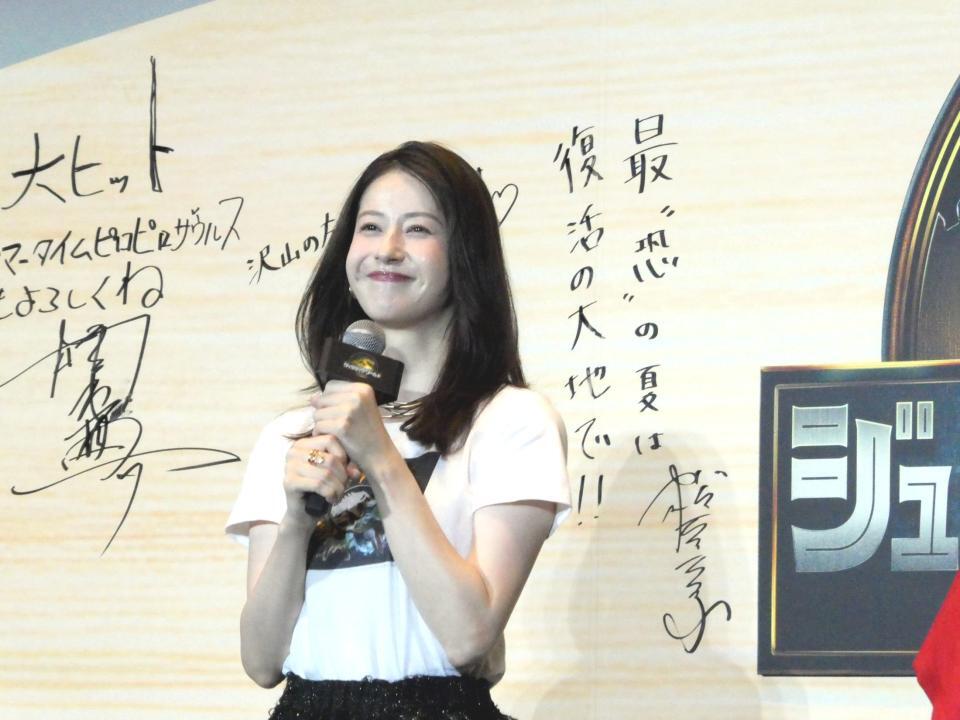 大ヒット
マータイムピコピコザウルス
よろしくね
沢山の
最"恐"の夏は
復活の大地で!!
ジュ